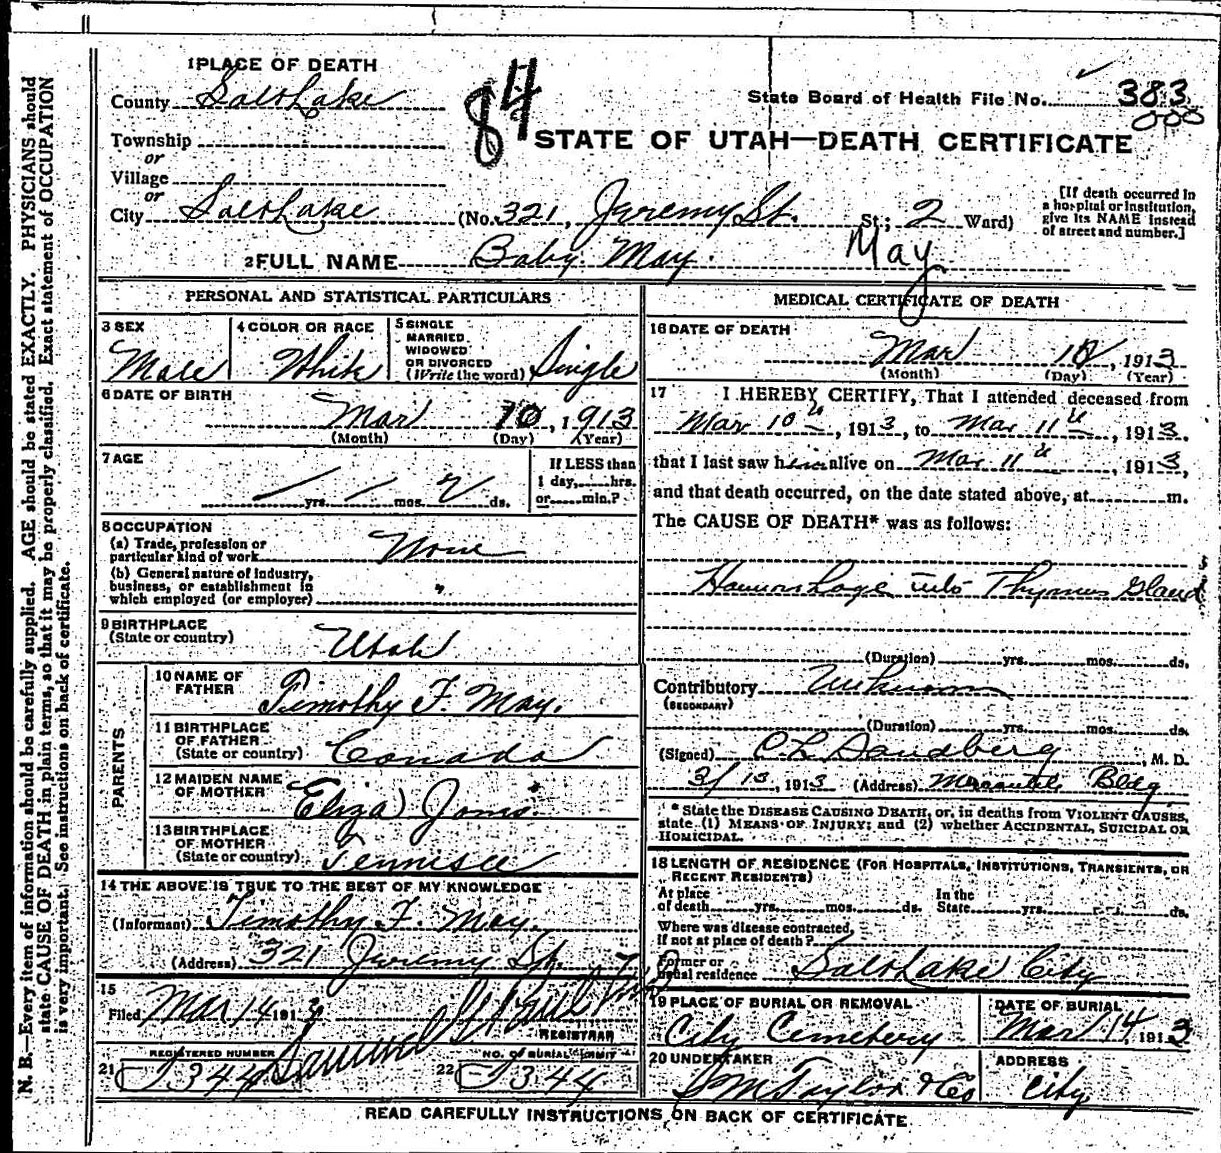 N. B.—Every item of information should be carefully supplied. AGE should be stated EXACTLY. PHYSICIANS should
state CAUSE OF DEATH in plain terms, so that it may be properly classified. Exact statement of OCCUPATION
is very important. See instructions on back of certificate.
84
State Board of Health File No. 383
000
STATE OF UTAH—DEATH CERTIFICATE
1 PLACE OF DEATH
County Salt Lake
Township
or
Village
or
City Salt Lake (No. 321, Jeremy St. St; 2 Ward)
[If death occurred in
a hospital or institution,
give its NAME instead
of street and number.]
2 FULL NAME Baby May. May
PERSONAL AND STATISTICAL PARTICULARS
3 SEX
Male
4 COLOR OR RACE
White
5 SINGLE
MARRIED
WIDOWED
OR DIVORCED
(Write the word) Single
6 DATE OF BIRTH
Mar 10, 1913
(Month) (Day) (Year)
7 AGE
/ yrs. / mos. 2 ds.
If LESS than
1 day, hrs.
or min.?
8 OCCUPATION
(a) Trade, profession or
particular kind of work None
(b) General nature of industry,
business, or establishment in
which employed (or employer) "
9 BIRTHPLACE
(State or country) Utah
PARENTS
10 NAME OF
FATHER Timothy F. May.
11 BIRTHPLACE
OF FATHER
(State or country) Canada
12 MAIDEN NAME
OF MOTHER Eliza Jones
13 BIRTHPLACE
OF MOTHER
(State or country) Tennisee
14 THE ABOVE IS TRUE TO THE BEST OF MY KNOWLEDGE
(Informant) Timothy F. May.
(Address) 321 Jeremy St.
15
Filed Mar 14 1913 Samuel G Paul
REGISTRAR
REGISTERED NUMBER
21 J344
NO. OF BURIAL PERMIT
22 J344
MEDICAL CERTIFICATE OF DEATH
16 DATE OF DEATH
Mar 12, 1913
(Month) (Day) (Year)
17 I HEREBY CERTIFY, That I attended deceased from
Mar 10th, 1913, to Mar 11th, 1913.
that I last saw him alive on Mar 11th, 1913,
and that death occurred, on the date stated above, at m.
The CAUSE OF DEATH* was as follows:
Hamorrhage into Thymus Gland
(Duration) yrs. mos. ds.
Contributory Unknown
(SECONDARY)
(Duration) yrs. mos. ds.
(Signed) C L Sandberg, M. D.
3/13, 1913 (Address) Mercantile Bldg
* State the DISEASE CAUSING DEATH, or, in deaths from VIOLENT CAUSES,
state (1) MEANS OF INJURY; and (2) whether ACCIDENTAL, SUICIDAL OR
HOMICIDAL.
18 LENGTH OF RESIDENCE (FOR HOSPITALS, INSTITUTIONS, TRANSIENTS, OR
RECENT RESIDENTS)
At place
of death yrs. mos. ds.
In the
State yrs. ds.
Where was disease contracted,
if not at place of death?
Former or
usual residence Salt Lake City
19 PLACE OF BURIAL OR REMOVAL
City Cemetery
DATE OF BURIAL
Mar 14, 1913
20 UNDERTAKER
S M Taylor & Co
ADDRESS
City
READ CAREFULLY INSTRUCTIONS ON BACK OF CERTIFICATE